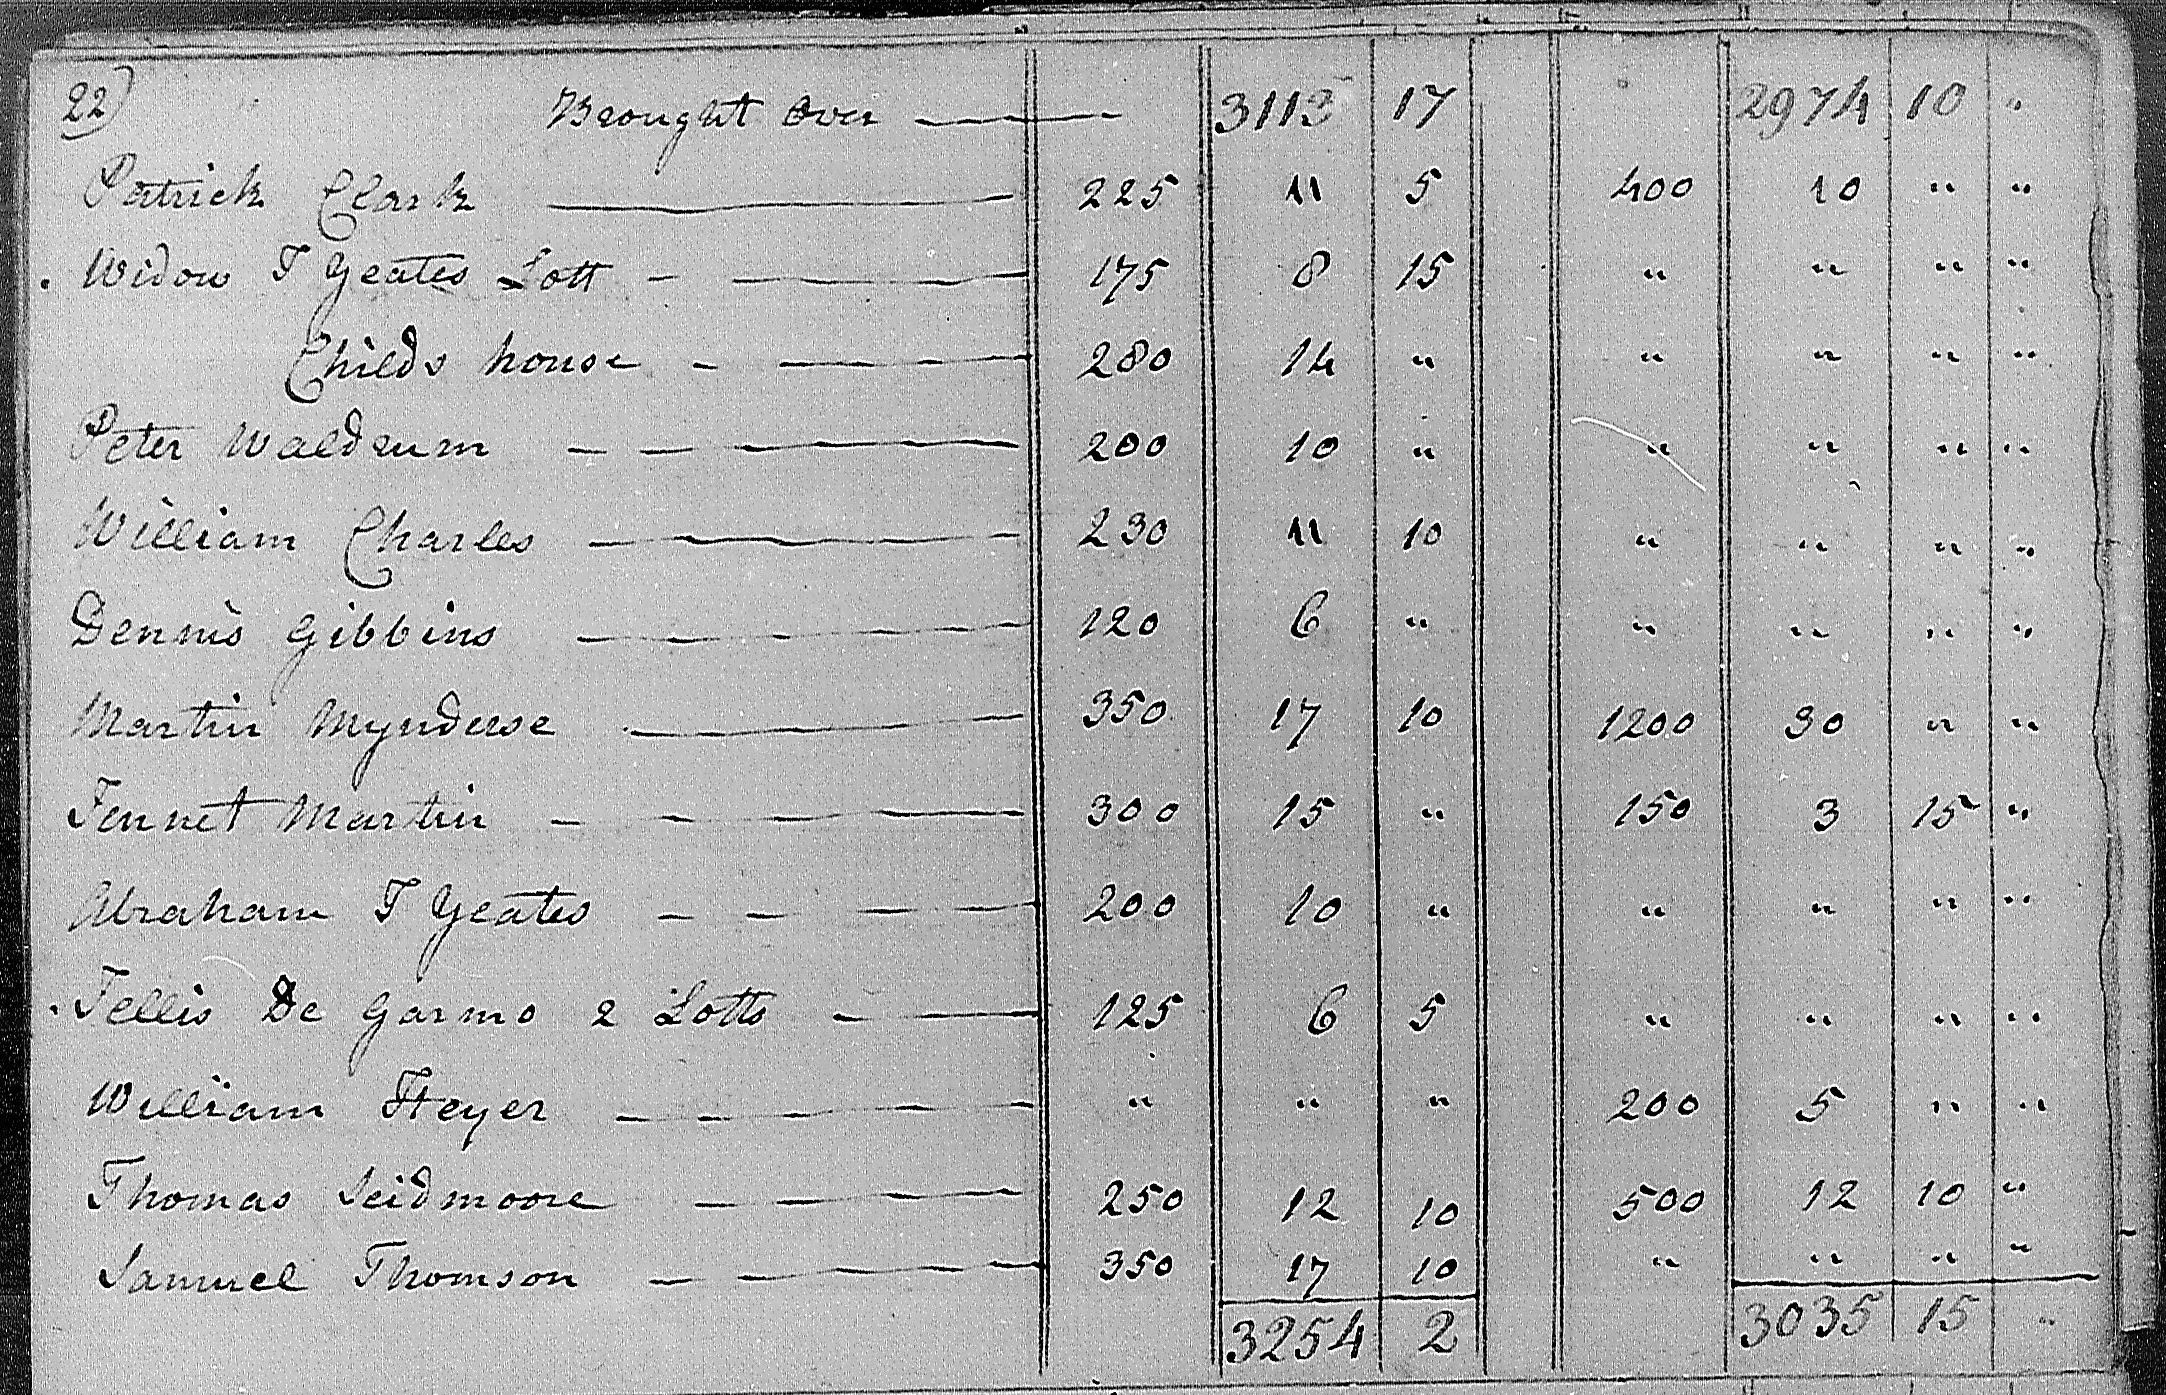 22)
Brought Over — 3113 17 2974 10 "
Patrick Clark — 225 11 5 400 10 " "
Widow T Yeates Lott — 175 8 15 " " " "
Childs house — 280 14 " " " " "
Peter Waldrum — 200 10 " " " " "
William Charles — 230 11 10 " " " "
Dennis Gibbins — 120 6 " " " " "
Martin Mynderse — 350 17 10 1200 30 " "
Jennet Martin — 300 15 " 150 3 15 "
Abraham T Yeates — 200 10 " " " " "
Jellis De Garmo 2 Lotts — 125 6 5 " " " "
William Heyer — " " " 200 5 " "
Thomas Scidmoore — 250 12 10 500 12 10 "
Samuel Thomson — 350 17 10 " " " "
3254 2 3035 15 "